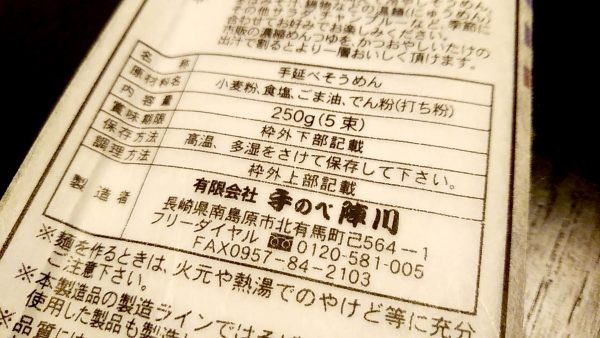 鍋物などの温麺(にゅうめん)
チャンプルーなど、季節に
合わせてお好みでお楽しみください。
市販の濃縮めんつゆを、かつおやしいたけの
出汁で割るとより一層おいしく頂けます。
名称 手延べそうめん
原材料名 小麦粉、食塩、ごま油、でん粉(打ち粉)
内容量 250g(5束)
賞味期限 枠外下部記載
保存方法 高温、多湿をさけて保存して下さい。
調理方法 枠外上部記載
製造者 有限会社 手のべ 陣川
長崎県南島原市北有馬町己564-1
フリーダイヤル 0120-581-005
FAX0957-84-2103
※麺を作るときは、火元や熱湯でのやけど等に充分
ご注意下さい。
※本製造品の製造ラインではそば
使用した製品も製造し
※品質には